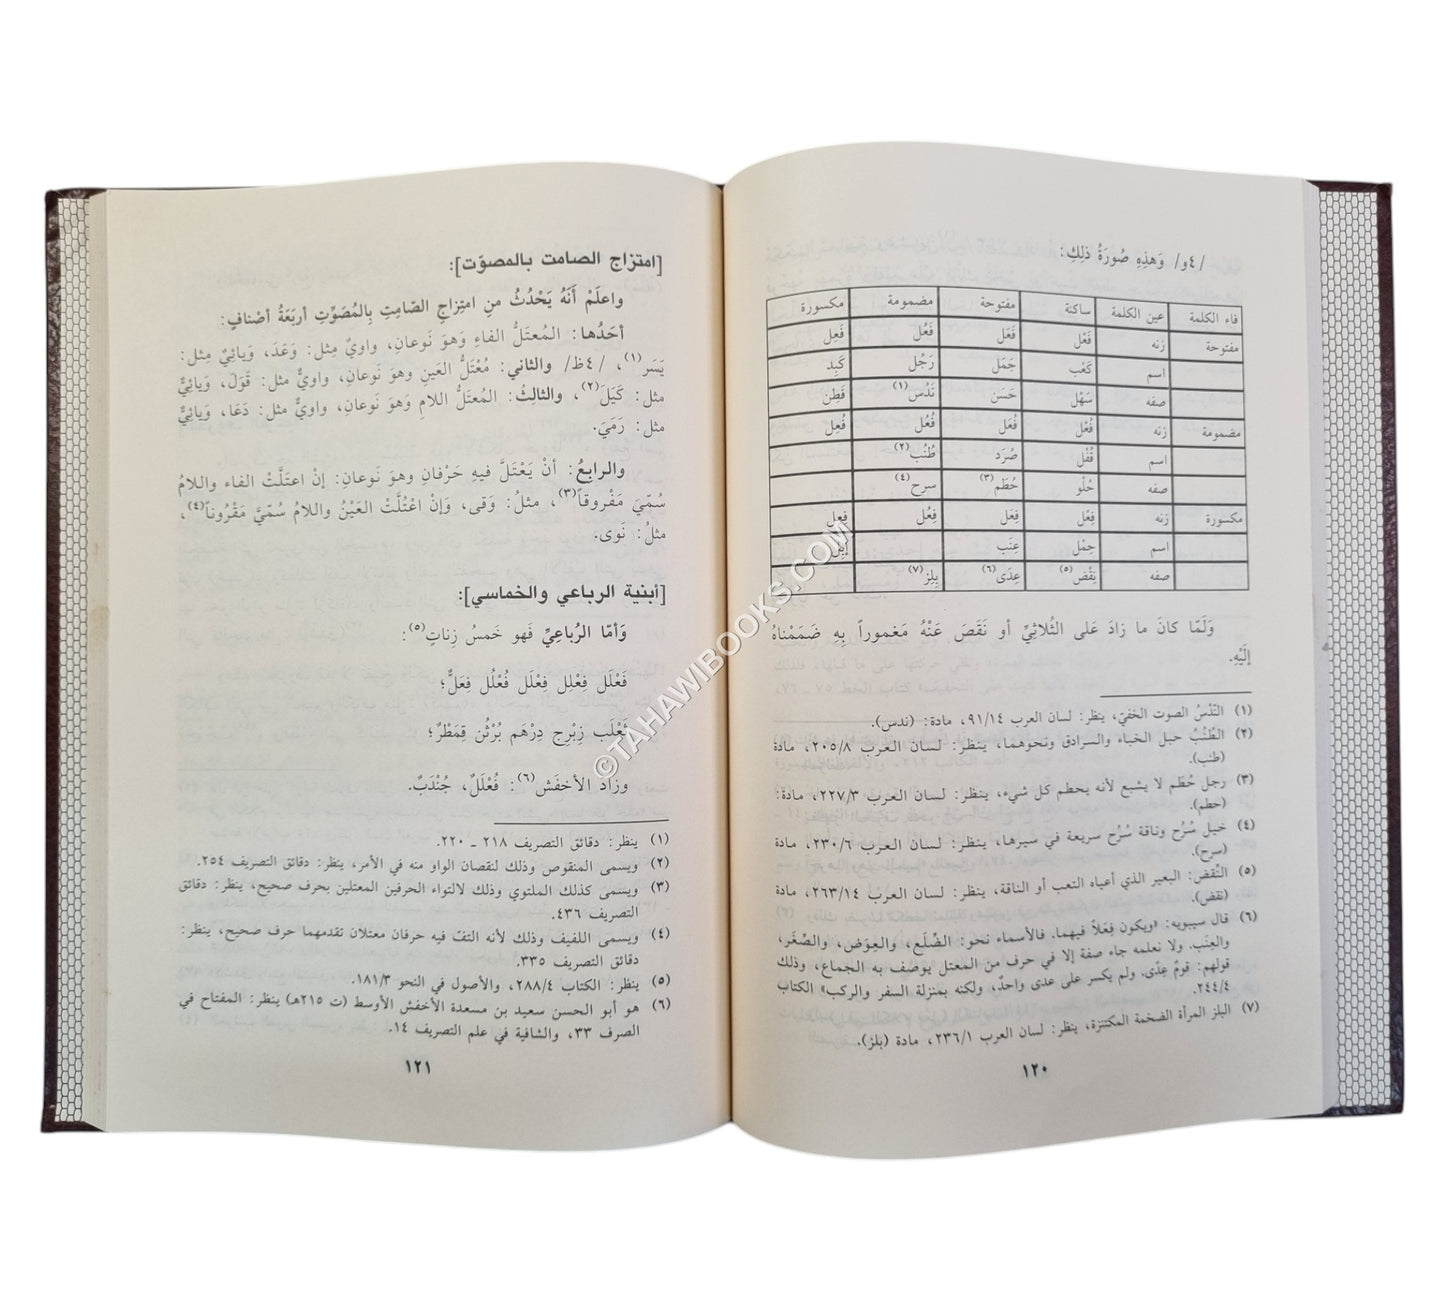 /٤و/ وَهذِهِ صُورَةُ ذلِكِ:
فاء الكلمة عين الكلمة ساكنة مفتوحة مضمومة مكسورة
مفتوحة زنه فَعْل فَعَل فَعُل فَعِل
اسم كَعْب جَمَل رَجُل كَبِد
صفه سَهْل حَسَن نَدُس(١) فَطِن
مضمومة زنه فُعْل فُعَل فُعُل فُعِل
اسم قُفْل صُرَد طُنُب(٢)
صفه حُلْو حُطَم(٣) سرح(٤)
مكسورة زنه فِعْل فِعَل فِعُل فِعِل
اسم حِمْل عِنَب إبِل
صفه نِقْض(٥) عِدَى(٦) بِلِز(٧)
وَلَمّا كانَ ما زادَ عَلى الثُلاثِيِّ أو نَقَصَ عَنْهُ مَغموراً بِهِ ضَمَمْناهُ
إلَيْهِ.
(١) النّدْسُ الصوت الخفيّ، ينظر: لسان العرب ٩١/١٤، مادة: (ندس).
(٢) الطُنُبُ حبل الخباء والسرادق ونحوهما، ينظر: لسان العرب ٢٠٥/٨، مادة
(طنب).
(٣) رجل حُطَم لا يشبع لأنه يحطم كل شيء، ينظر: لسان العرب ٢٢٧/٣، مادة:
(حطم).
(٤) خيل سُرُح وناقة سُرُح سريعة في سيرها، ينظر: لسان العرب ٢٣٠/٦، مادة
(سرح).
(٥) النُقض: البعير الذي أعياه التعب أو الناقة، ينظر: لسان العرب ٢٦٣/١٤، مادة
(نقض).
(٦) قال سيبويه: «ويكون فِعَلاً فيهما. فالأسماء نحو: الضِّلَع، والعِوَض، والصِّغَر،
والعِنَب. ولا نعلمه جاء صفة إلا في حرف من المعتل يوصف به الجماع، وذلك
قولهم: قومٌ عِدًى. ولم يكسر على عدى واحدٌ، ولكنه بمنزلة السفر والركب» الكتاب
٢٤٤/٤.
(٧) البلز المرأة الضخمة المكتنزة، ينظر: لسان العرب ٢٣٦/١، مادة (بلز).
١٢٠
[امتزاج الصامت بالمصوّت]:
واعلَمْ أَنَهُ يَحْدُثُ منِ امتِزاجِ الصّامِتِ بِالمُصَوِّتِ أربَعَةُ أصْنافٍ:
أحَدُها: المُعتَلُّ الفاءِ وَهوَ نَوعانِ، واويٌ مِثل: وَعَدَ، وَيائِيٌ مِثل:
يَسَر(١)، /٤ظ/ والثاني: مُعْتَلُّ العَينِ وهوَ نَوعانِ، واويٌّ مثل: قَوَلَ، وَيائِيٌّ
مثل: كَيَلَ(٢)، والثالِثُ: المُعتَلُ اللامِ وَهوَ نَوعانِ، واويٌّ مثل: دَعَا، وَيائِيٌّ
مثل: رَمَيَ.
والرابِعُ: أنْ يَعْتَلَّ فيهِ حَرْفانِ وهوَ نَوعانِ: إنْ اعتَلَّتْ الفاء واللامُ
سُمّيَ مَفْروقاً(٣)، مثلُ: وَقى، وَإنْ اعْتُلَّتْ العَيْنُ واللامُ سُمّيَّ مَقْرُوناً(٤)،
مثلُ: نَوى.
[أبنية الرباعي والخماسي]:
وَأمّا الرُباعِيِّ فَهو خَمسُ زِناتٍ(٥):
فَعْلَل فِعْلِل فِعْلَل فُعْلُل فِعَلٌّ؛
ثَعْلَب زِبْرِج دِرْهَم بُرْثُن قِمَطْرٌ؛
وزادَ الأخفَش(٦): فُعْلَلٌ، جُنْدَبٌ.
(١) ينظر: دقائق التصريف ٢١٨ ـ ٢٢٠.
(٢) ويسمى المنقوص وذلك لنقصان الواو منه في الأمر، ينظر: دقائق التصريف ٢٥٤.
(٣) ويسمى كذلك الملتوي وذلك لالتواء الحرفين المعتلين بحرف صحيح، ينظر: دقائق
التصريف ٤٣٦.
(٤) ويسمى اللفيف وذلك لأنه التفّ فيه حرفان معتلان تقدمهما حرف صحيح، ينظر:
دقائق التصريف ٣٣٥.
(٥) ينظر: الكتاب ٢٨٨/٤، والأصول في النحو ١٨١/٣.
(٦) هو أبو الحسن سعيد بن مسعدة الأخفش الأوسط (ت ٢١٥هـ) ينظر: المفتاح في
الصرف ٣٣، والشافية في علم التصريف ١٤.
١٢١
©TAHAWIBOOKS.COM